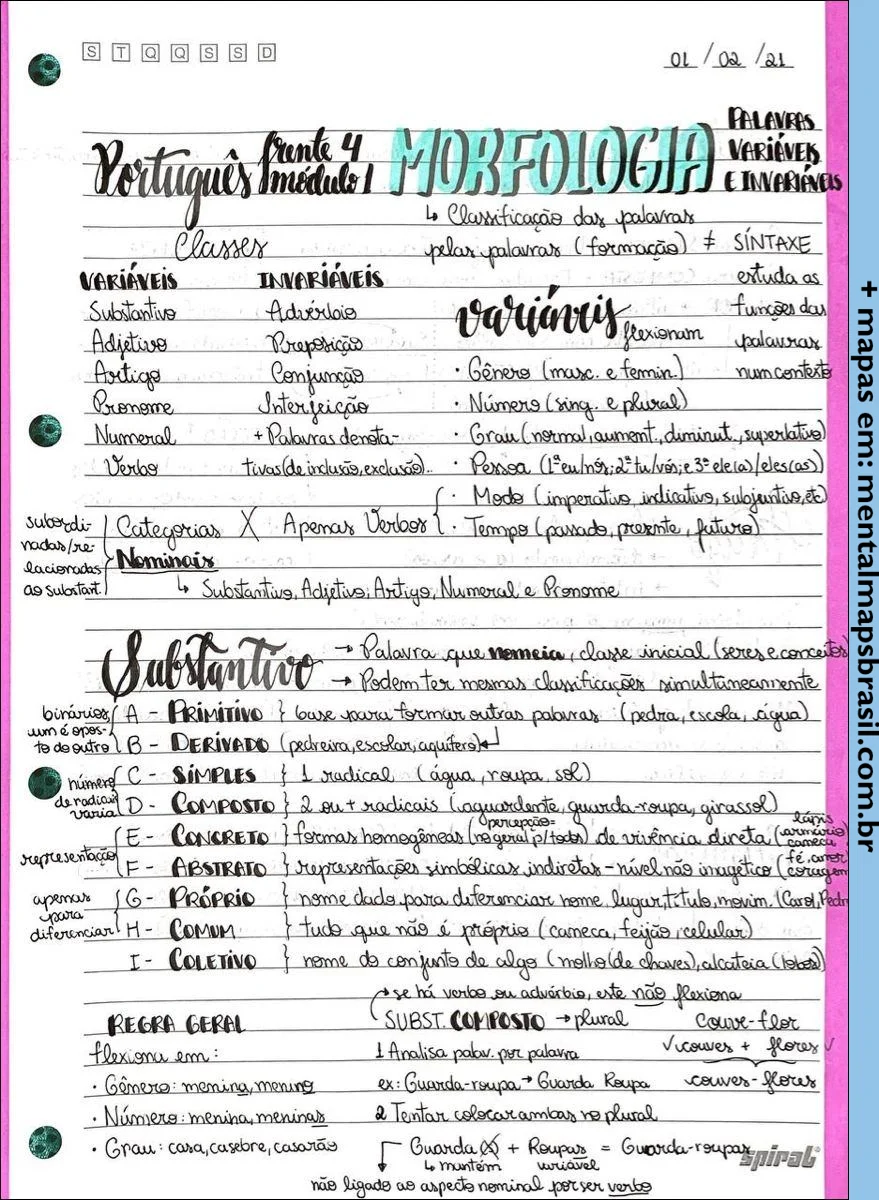 S T Q Q S S D
01 / 02 / 21
Português frente 4 módulo 1 MORFOLOGIA PALAVRAS VARIÁVEIS E INVARIÁVEIS
↳ Classificação das palavras
pelas palavras (formação) ≠ SÍNTAXE
estuda as
funções das
palavras
num contexto
Classes
VARIÁVEIS INVARIÁVEIS
Substantivo Advérbio
Adjetivo Preposição
Artigo Conjunção
Pronome Interjeição
Numeral + Palavras denota-
Verbo tivas (de inclusão, exclusão)...
variáveis flexionam
· Gênero (masc. e femin.)
· Número (sing. e plural)
· Grau (normal, aument., diminut., superlativo)
· Pessoa (1ª eu/nós; 2ª tu/vós; e 3ª ele(a)/eles(as))
· Modo (imperativo, indicativo, subjuntivo, etc)
Categorias X Apenas Verbos { · Tempo (passado, presente, futuro)
Nominais
subordi-
nadas/re-
lacionadas
ao substant.
↳ Substantivo, Adjetivo, Artigo, Numeral e Pronome
Substantivo → Palavra que nomeia, classe inicial (seres e conceitos)
→ Podem ter mesmas classificações simultaneamente
binários,
um é opos-
to do outro
A - PRIMITIVO } base para formar outras palavras (pedra, escola, água)
B - DERIVADO (pedreira, escolar, aquífero)
número
de radicais
varia
C - SIMPLES } 1 radical (água, roupa, sol)
D - COMPOSTO } 2 ou + radicais (aguardente, guarda-roupa, girassol)
representação
E - CONCRETO } formas homogêneas (percepção = no geral p/ todos) de vivência direta (lápis, armário, caneca)
F - ABSTRATO } representações simbólicas, indiretas - nível não imagético (fé, amor, coragem
apenas
para
diferenciar
G - PRÓPRIO } nome dado para diferenciar nome, lugar, título, movim. (Carol, Pedr
H - COMUM } tudo que não é próprio (caneca, feijão, celular)
I - COLETIVO } nome do conjunto de algo (molho (de chaves), alcateia (lobos)
REGRA GERAL
flexiona em:
· Gênero: menina, menino
· Número: menina, meninas
· Grau: casa, casebre, casarão
se há verbo ou advérbio, este não flexiona
SUBST. COMPOSTO → plural
1 Analisa palav. por palavra
ex: Guarda-roupa → Guarda Roupa
2 Tentar colocar ambas no plural
Guarda(s) + Roupas = Guarda-roupas
↳ mantém variável
não ligado ao aspecto nominal por ser verbo
Couve-flor
√ couves + flores √
couves-flores
spiral
+ mapas em: mentalmapsbrasil.com.br